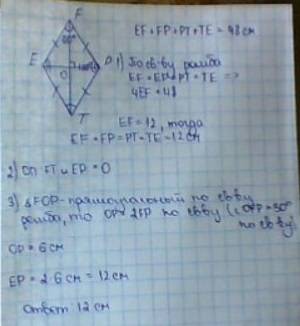 F
60°
E
P
O
T
EF + FP + PT + TE = 48 см
1) По св-ву ромба
EF = FP = PT = TE =>
4EF = 48
EF = 12, тогда
EF = FP = PT = TE = 12 см
2) FT и EP = O
3) △FOP - прямоугольный по св-ву
ромба, то OP = 2FP по св-ву (∠OFP = 30°
по св-ву)
OP = 6 см
EP = 2·6 см = 12 см
Ответ: 12 см